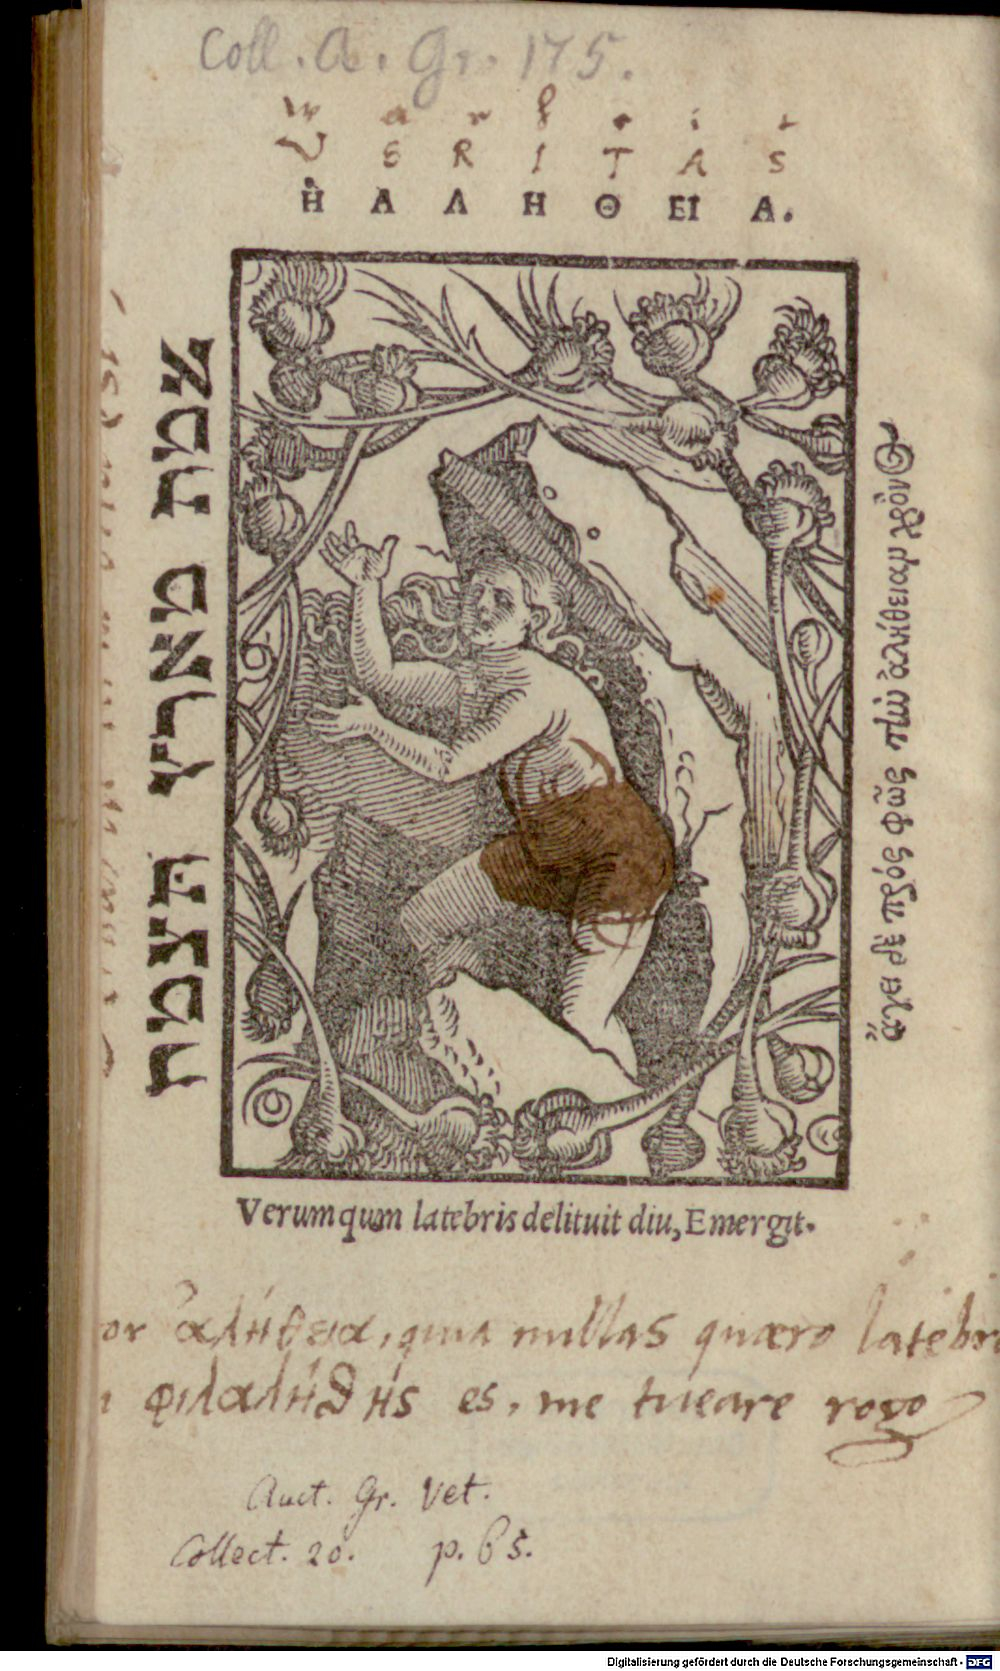 Coll. A. Gr. 175.
Warheit
VERITAS
Ἡ ΑΛΗΘΕΙΑ.
אמת מארץ תצמח
ἄγει δὲ πρὸς φῶς τὴν ἀλήθειαν χρόνος
Verum quum latebris delituit diu, Emergit.
or ἀλήθεια, quia nullas quæro latebr
φιλαλήθης es, me tueare rogo
Auct. Gr. Vet.
Collect. 20. p. 65.
Digitalisierung gefördert durch die Deutsche Forschungsgemeinschaft - DFG